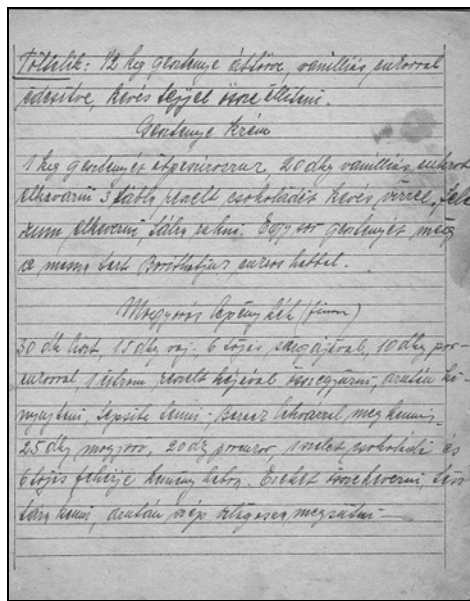 Töltelék: 1/2 kg gesztenye áttörve, vaniliás cukorral
édesítve, kevés tejjel összeállítani.
Gesztenye krém
1 kg gesztenyét 20 dkg vaniliás cukrot
elkavarni 3 tábla reszelt csokoládét kevés vízzel,
rum elkeverni, tálra rakni. Egy sor gesztenyét még
Boríthatjuk cukros habbal.
Mogyorós lepény (finom)
30 dk liszt, 15 dkg vaj. 6 tojás sárgájával, 10 dkg por-
cukorral, 1 citrom reszelt héjával összegyúrni, azután ki-
nyujtani, tepsibe tenni. Baracz lekvárral megkenni,
25 dkg mogyoró, 20 dg porcukor, 1 szelet csokoládé és
6 tojás fehérje kemény habja. Ezeket összekeverni,
kenni, azután szép megsütni